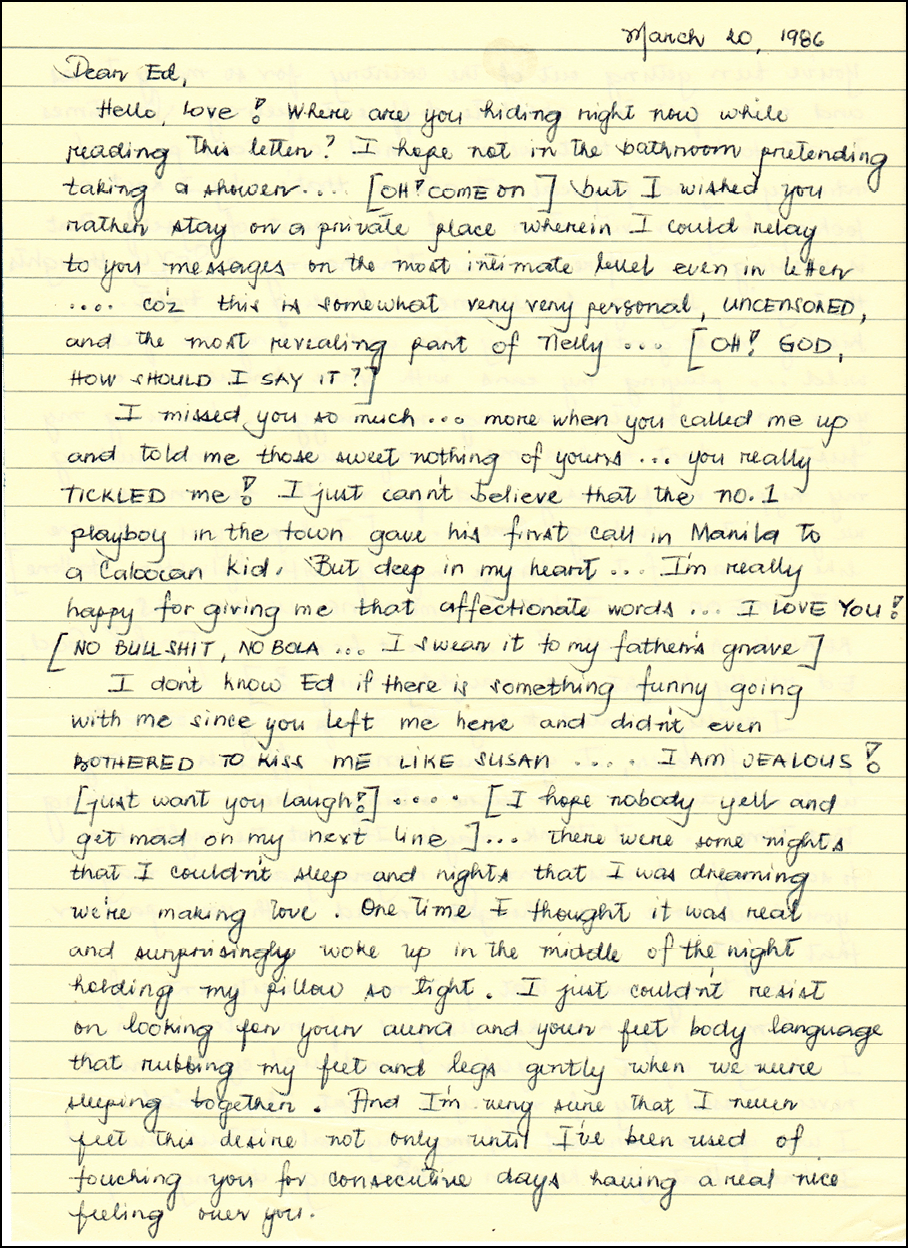 March 20, 1986
Dear Ed,
Hello, love! Where are you hiding right now while
reading this letter? I hope not in the bathroom pretending
taking a shower.... [OH! COME ON] but I wished you
rather stay on a private place wherein I could relay
to you messages on the most intimate level even in letter
.... co'z this is somewhat very very personal, UNCENSORED,
and the most revealing part of Nelly ... [OH! GOD,
HOW SHOULD I SAY IT?]
I missed you so much ... more when you called me up
and told me those sweet nothing of yours ... you really
TICKLED me! I just cann't believe that the no. 1
playboy in the town gave his first call in Manila to
a Caloocan kid. But deep in my heart ... I'm really
happy for giving me that affectionate words ... I LOVE YOU!
[NO BULLSHIT, NO BOLA ... I swear it to my father's grave]
I don't know Ed if there is something funny going
with me since you left me here and didn't even
BOTHERED TO KISS ME LIKE SUSAN .... I AM JEALOUS!
[just want you laugh!] .... [I hope nobody yell and
get mad on my next line] ... there were some nights
that I couldn't sleep and nights that I was dreaming
we're making love. One time I thought it was real
and surprisingly woke up in the middle of the night
holding my pillow so tight. I just couldn't resist
on looking for your aura and your feet body language
that rubbing my feet and legs gently when we were
sleeping together. And I'm very sure that I never
feet this desire not only until I've been used of
touching you for consecutive days having a real nice
feeling over you.